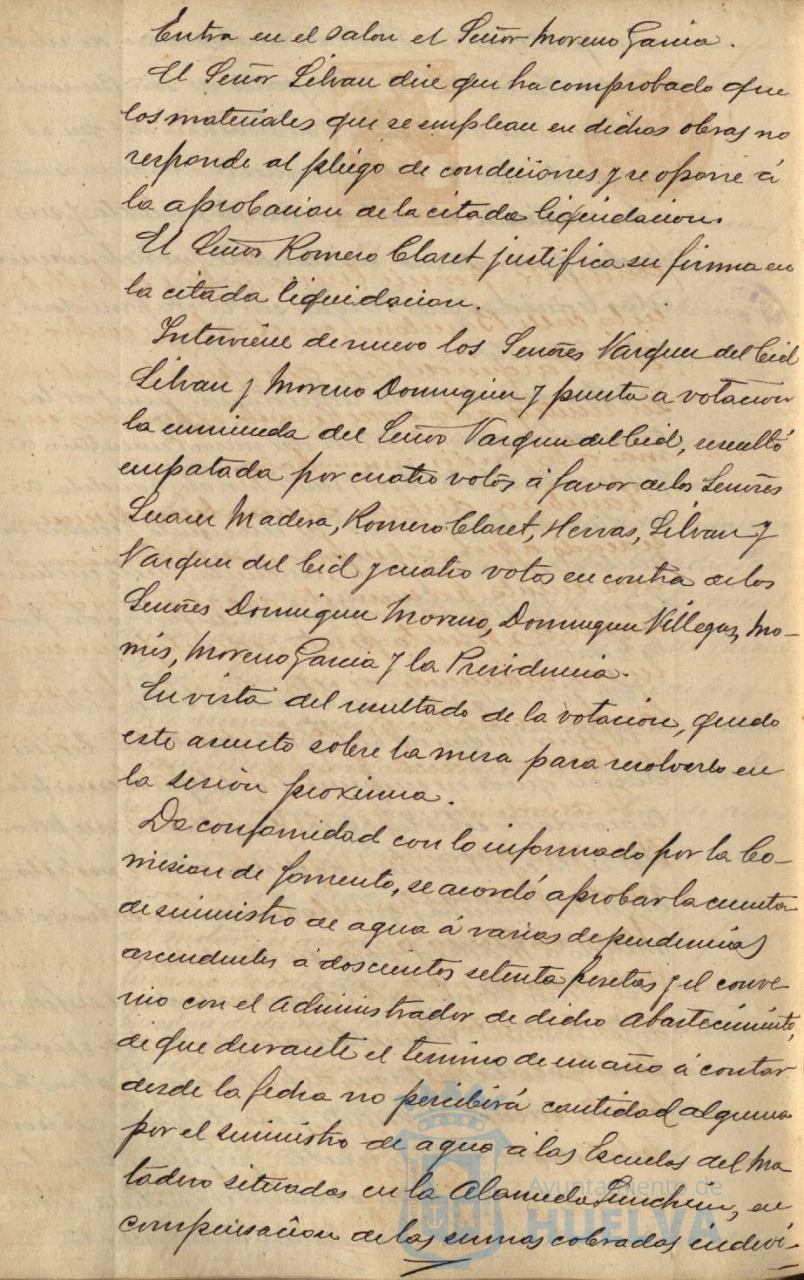 Entra en el salon el Señor Moreno Garcia.
El Señor Silvan dice que ha comprobado que
los materiales que se emplean en dichas obras no
responde al pliego de condiciones y se opone á
la aprobacion de la citada liquidacion.
El Señor Romero Claret justifica su firma en
la citada liquidacion.
Interviene de nuevo los Señores Vazquez del Cid
Silvan y Moreno Dominguez y puesta a votacion
la enmienda del Señor Vazquez del Cid, resultó
empatada por cuatro votos á favor de los Señores
Suarez Madera, Romero Claret, Hervas, Silvan y
Vazquez del Cid y cuatro votos en contra de los
Señores Dominguez Moreno, Dominguez Villegas, Mo-
nis, Moreno Garcia y la Presidencia.
En vista del resultado de la votacion, quedo
este asunto sobre la mesa para resolverlo en
la sesion proxima.
De conformidad con lo informado por la Co-
mision de fomento, se acordó aprobar la cuenta
de suministro de agua á varias dependencias
ascendentes á doscientos setenta pesetas y el conve
nio con el Administrador de dicho Abastecimiento,
de que durante el termino de un año á contar
desde la fecha no percibirá cantidad alguna
por el suministro de agua á las Escuelas del Ma
tadero situadas en la Alameda Sundheim, en
compensacion de las sumas cobradas indevi-
Ayuntamiento de
HUELVA